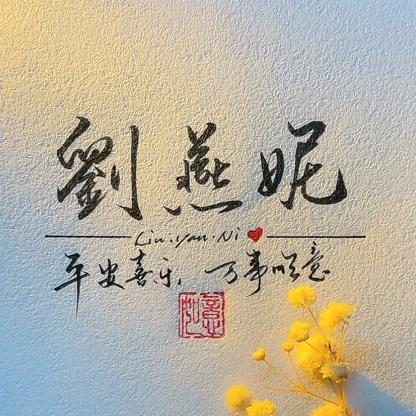 劉燕妮
Liu.yan.Ni
平安喜乐,万事顺意
如意